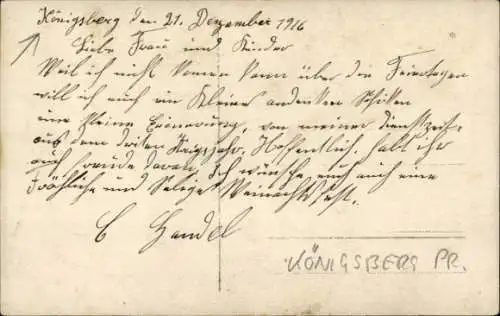 Königsberg den 21. Dezember 1916
Liebe Frau und Kinder
Weil ich nicht komen kann über die Feiertagen
will ich euch ein Kleines andenken Schiken
eine Kleine Erinerung, von meiner Dienstzeit,
aus dem driten Krigsjahr. Hoffentlich habt ihr
auch freude daran, Ich wünsche euch auch eine
Fröhliche und Selige Weinachtsfest.
E Handel
KÖNIGSBERG PR.